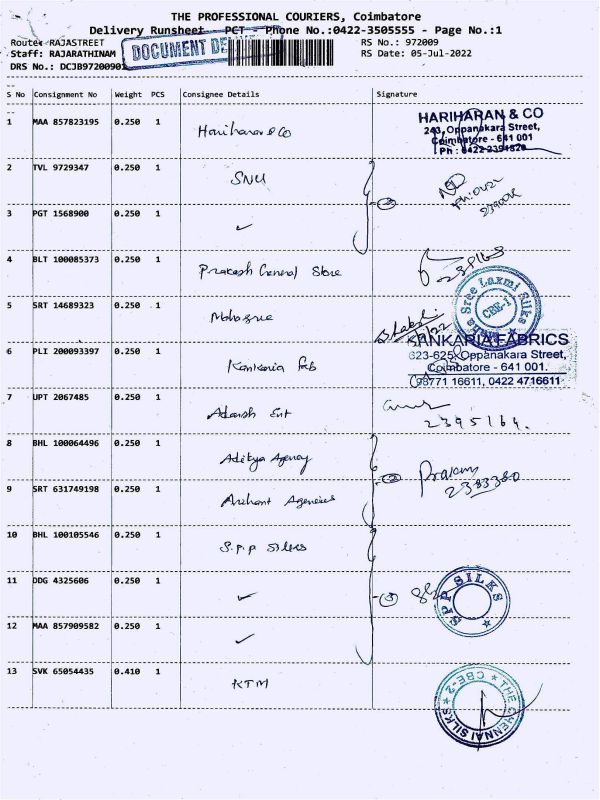 THE PROFESSIONAL COURIERS, Coimbatore
Delivery Runsheet PCT - Phone No.:0422-3505555 - Page No.:1
Route: RAJASTREET RS No.: 972009
Staff: RAJARATHINAM DOCUMENT RS Date: 05-Jul-2022
DRS No.: DCJB9720090
S No Consignment No Weight PCS Consignee Details Signature
1 MAA 857823195 0.250 1 Hariharan & Co
HARIHARAN & CO
243, Oppanakara Street,
Coimbatore - 641 001
Ph : 0422 2394820
2 TVL 9729347 0.250 1 SNU
3 PGT 1568900 0.250 1 ✓
4 BLT 100085373 0.250 1 Prakash General Store
5 SRT 14689323 0.250 1
Sree Laxmi Silks
CBE-1
6 PLI 200093397 0.250 1 Kankaria Fab
KANKARIA FABRICS
623-625, Oppanakara Street,
Coimbatore - 641 001.
98771 16611, 0422 4716611
7 UPT 2067485 0.250 1 Adarsh Ent
2395164.
8 BHL 100064496 0.250 1 Aditya Agency
2383380
9 SRT 631749198 0.250 1 Arihant Agencies
10 BHL 100105546 0.250 1 S.P.P Silks
11 DDG 4325606 0.250 1 ✓
SPP SILKS
12 MAA 857909582 0.250 1 ✓
13 SVK 65054435 0.410 1 KTM
THE CHENNAI SILKS
CBE-2